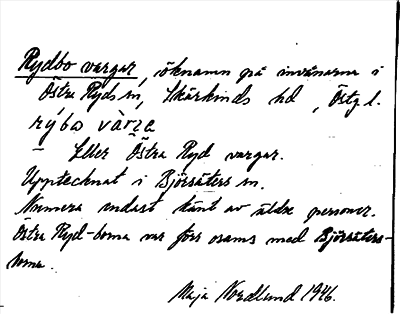 Rydbo vargar, öknamn på invånarna i
Östra Ryds sn, Skärkinds hd, Östgl.
rýbω vàrɡa
— Eller Östra Ryd vargar.
Upptecknat i Björsäters sn.
Numera endast känt av äldre personer.
Östra Ryd-borna var förr osams med Björsäters-
borna.
Maja Nordlund 1946.